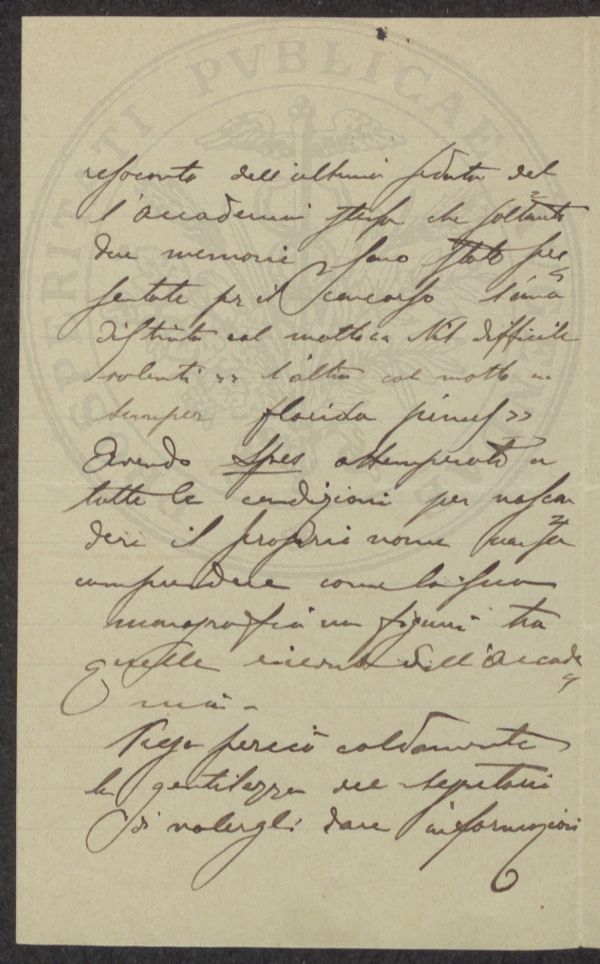 PROSPERITATI PVBLICAE
resoconto dell'ultima seduta del
l'Accademia stessa che soltanto
due memorie sono state pre
sentate per il concorso l'una
distinta col motto « Nil difficile
volenti » l'altra col motto «
semper florida pinus »
Avendo Spes ottemperato a
tutte le condizioni per nascon
dere il proprio nome non sa
comprendere come la sua
monografia non figuri tra
quelle dell'Accade
mia.
Prega perciò caldamente
la gentilezza del segretario
di volergli dare informazioni